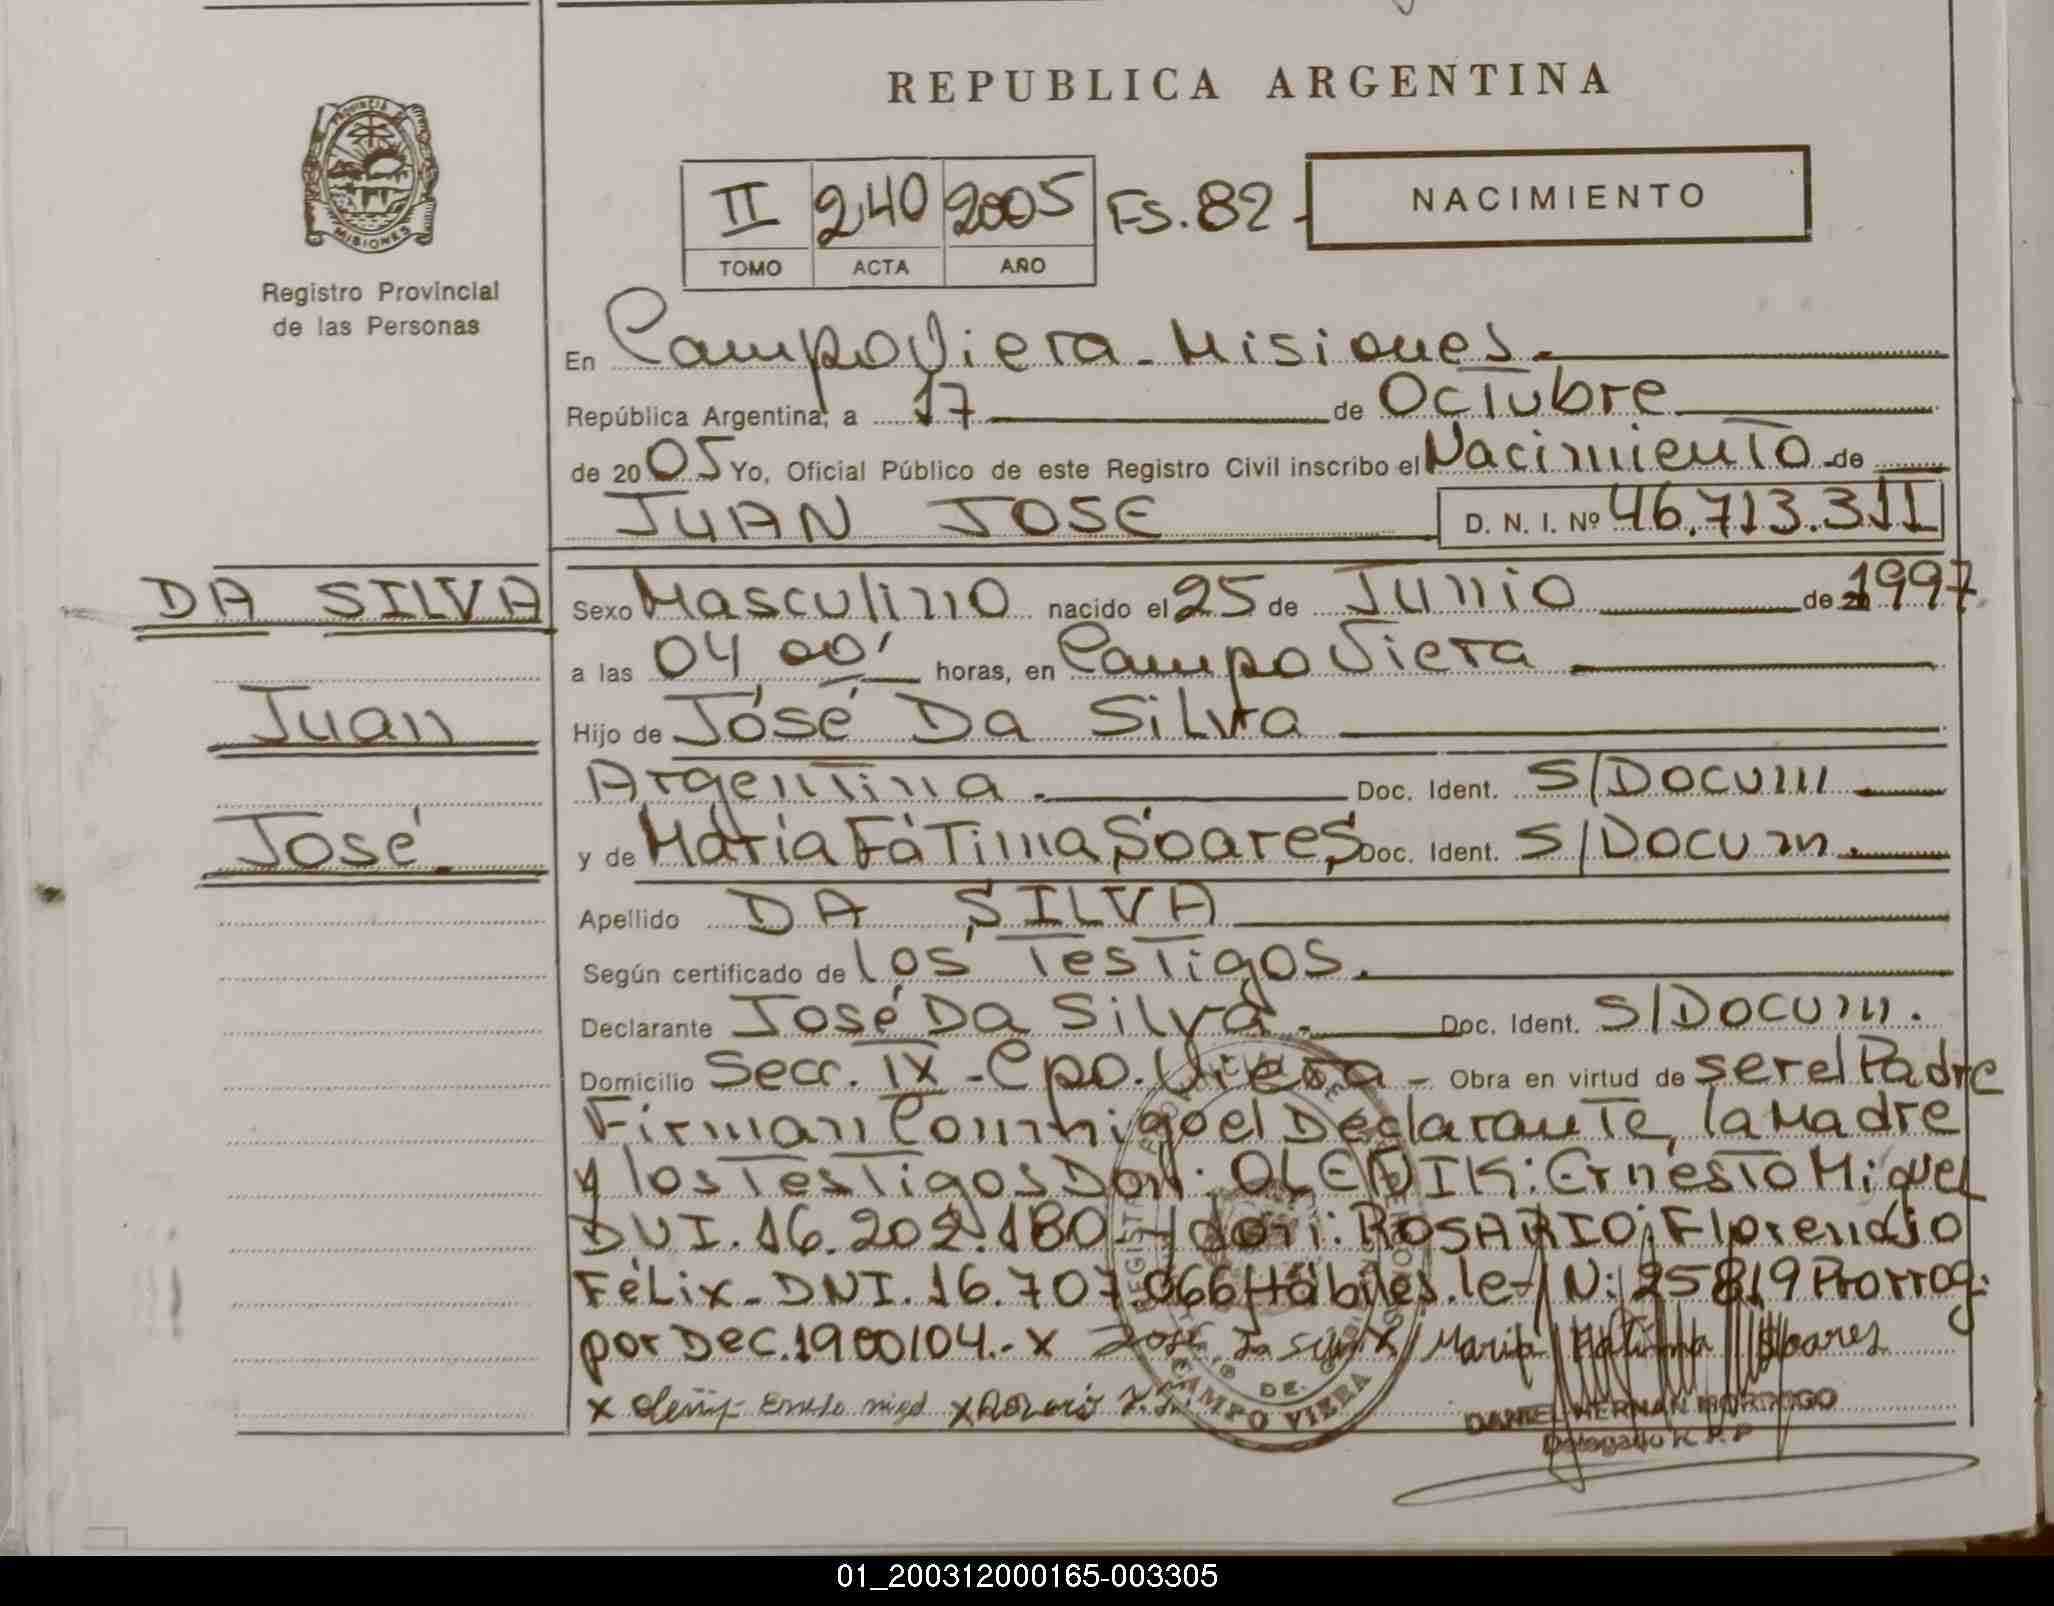 REPUBLICA ARGENTINA
PROVINCIA DE
MISIONES
Registro Provincial
de las Personas
II 240 2005 Fs. 82 - NACIMIENTO
TOMO ACTA AÑO
En Campo Viera - Misiones.-
República Argentina, a 17 de Octubre
de 2005 Yo, Oficial Público de este Registro Civil inscribo el Nacimiento de
JUAN JOSE D. N. I. Nº 46.713.311
DA SILVA
Juan
José.
Sexo Masculino nacido el 25 de Junio de 1997
a las 04 00' horas, en Campo Viera
Hijo de José Da Silva
Argentina.- Doc. Ident. S/Docum
y de María Fátima Soares Doc. Ident. S/Docum.
Apellido DA SILVA
Según certificado de los Testigos.
Declarante José Da Silva.- Doc. Ident. S/Docum.
Domicilio Secc. IX - Cpo. Viera - Obra en virtud de ser el Padre
Firman Conmigo el Declarante, la Madre
y los Testigos Don: OLEÑIK: Ernesto Miguel
DNI. 16.202.180 - y don: ROSARIO: Florencio
Félix - DNI. 16.707.066 Hábiles. ley N: 25819 Prorrog.
por Dec. 1900/04.- x José Da Silva x Maria Fatima Soares
x
CAMPO VIERA
DANIEL HERNAN
Delegado R. P. P
01_200312000165-003305